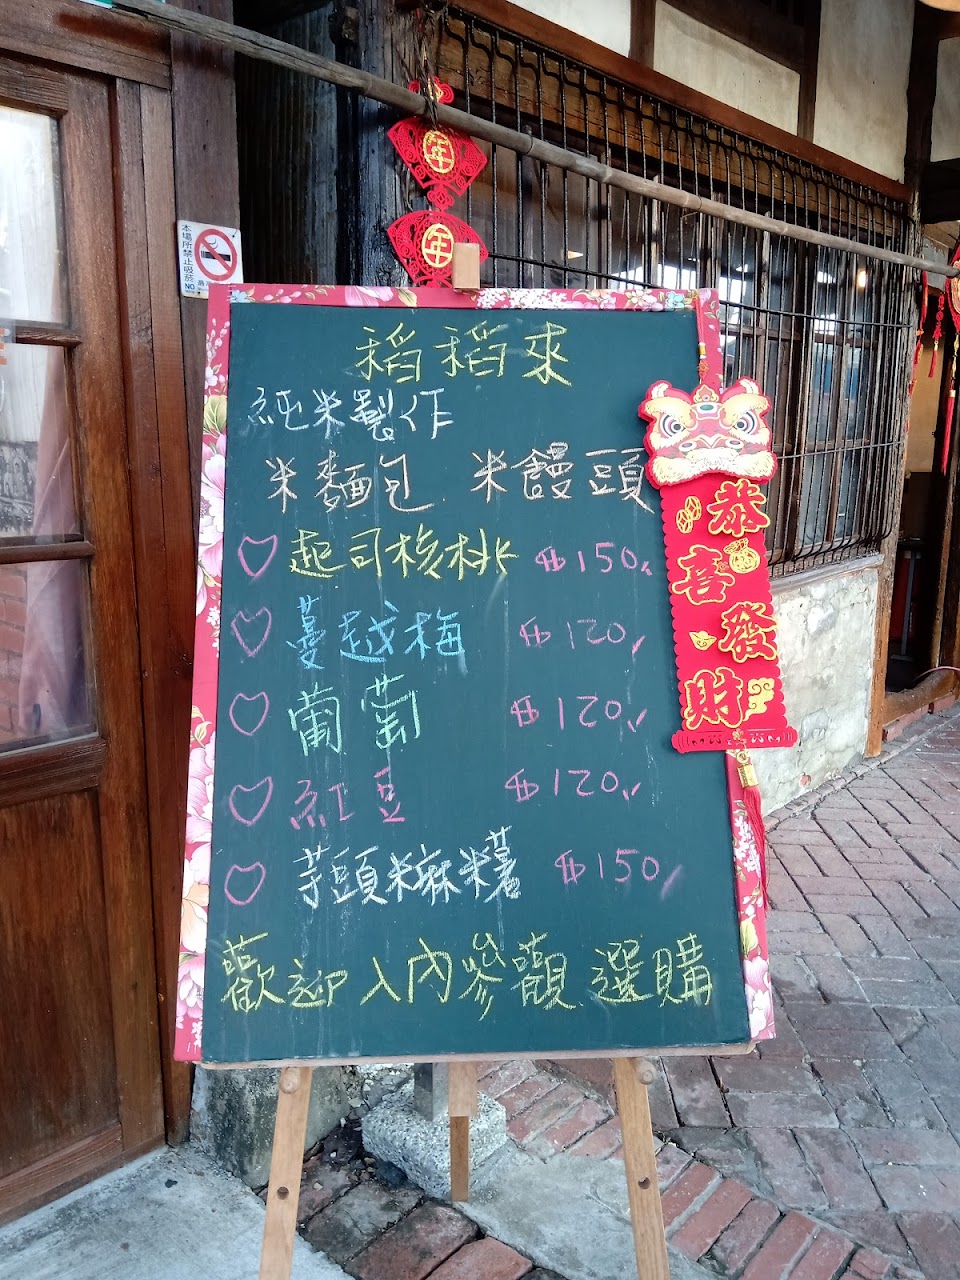 年
年
本場所禁止吸菸
NO
稻稻來
純米製作
米麵包 米饅頭
起司核桃 $150
蔓越梅 $120
葡萄 $120
紅豆 $120
芋頭米麻米糬 $150
歡迎入內參觀選購
恭喜發財